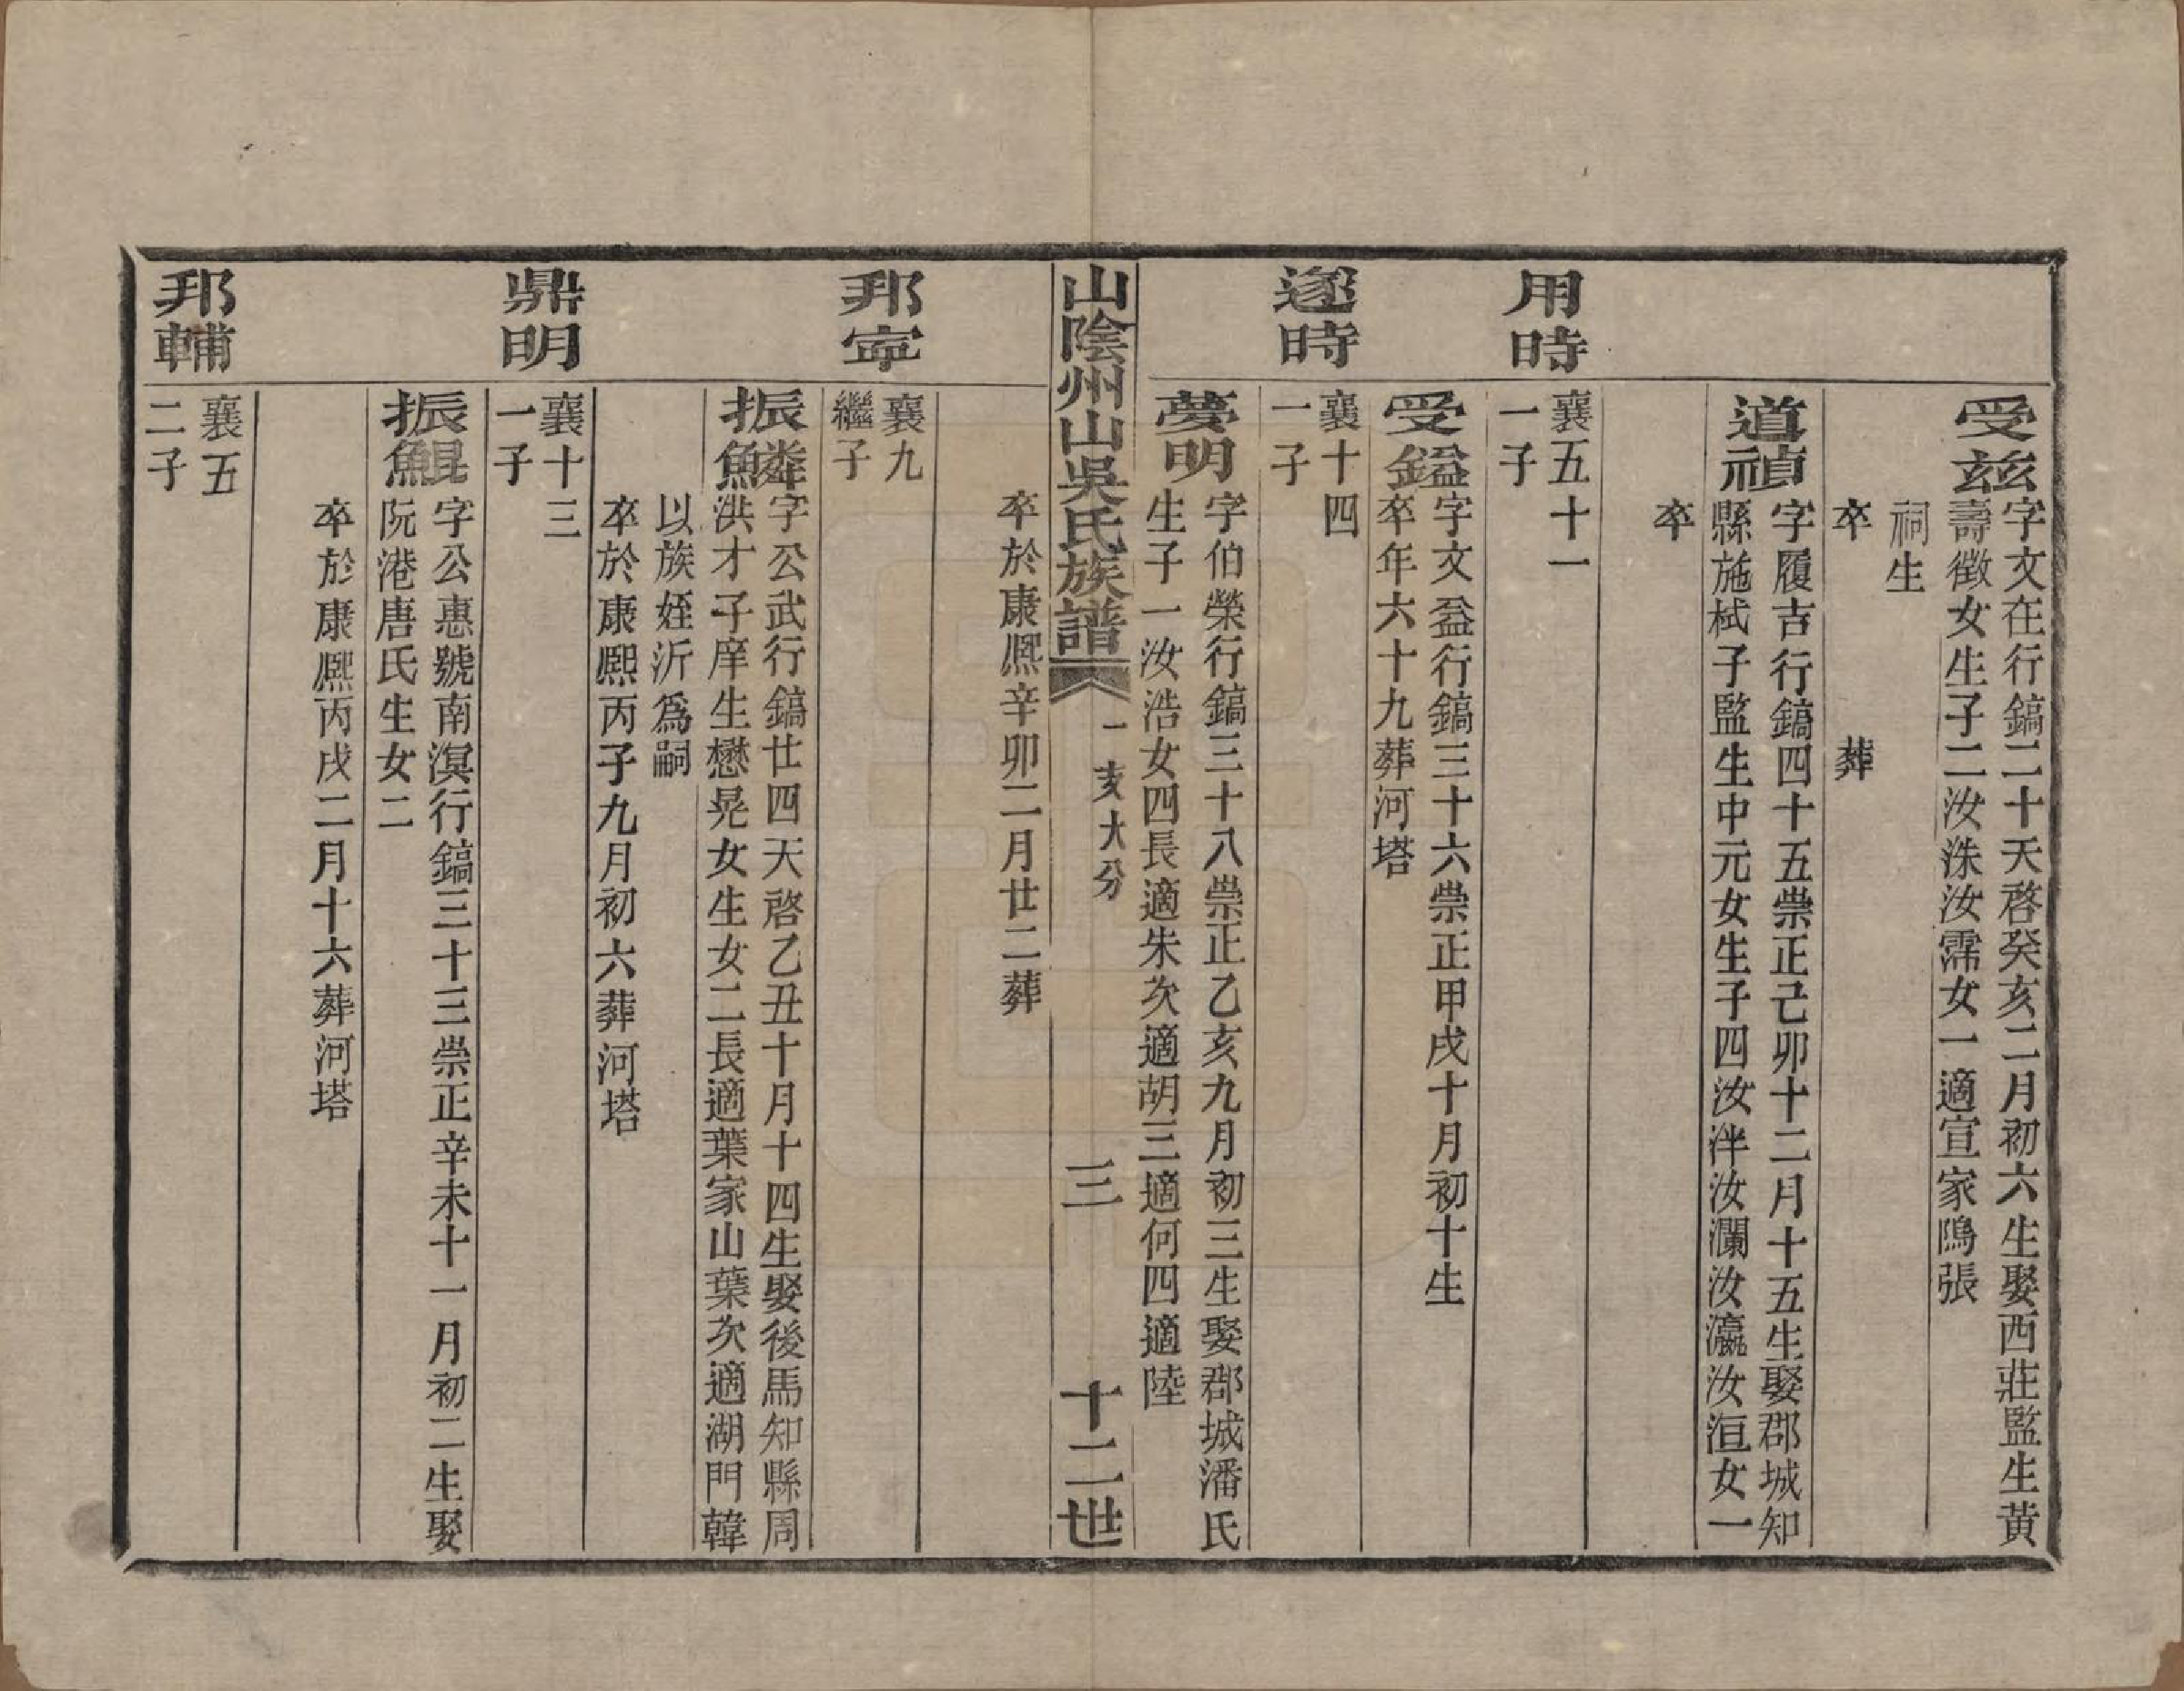 受兹
字文在行鎬二十天啓癸亥二月初六生娶西莊監生黃
壽徵女生子二汝洙汝霈女一適宣家隝張
祠生
卒　　　　葬
道禎
字履吉行鎬四十五崇正己卯十二月十五生娶郡城知
縣施栻子監生中元女生子四汝泮汝瀾汝瀛汝洹女一
卒
用時
襄五十一
一子
受鎰
字文益行鎬三十六崇正甲戌十月初十生
卒年六十九葬河塔
遂時
襄十四
一子
夢明
字伯榮行鎬三十八崇正乙亥九月初三生娶郡城潘氏
生子一汝浩女四長適朱次適胡三適何四適陸
山陰州山吳氏族譜
一亥大分
三
十二世
卒於康熙辛卯二月廿二葬
邦寧
襄九
繼子
振鱗
字公武行鎬廿四天啓乙丑十月十四生娶後馬知縣周
洪才子庠生懋晃女生女二長適葉家山葉次適湖門韓
以族姪沂爲嗣
卒於康熙丙子九月初六葬河塔
鼎明
襄十三
一子
振鯤
字公惠號南溟行鎬三十三崇正辛未十一月初二生娶
阮港唐氏生女二
卒於康熙丙戌二月十六葬河塔
邦輔
襄五
二子